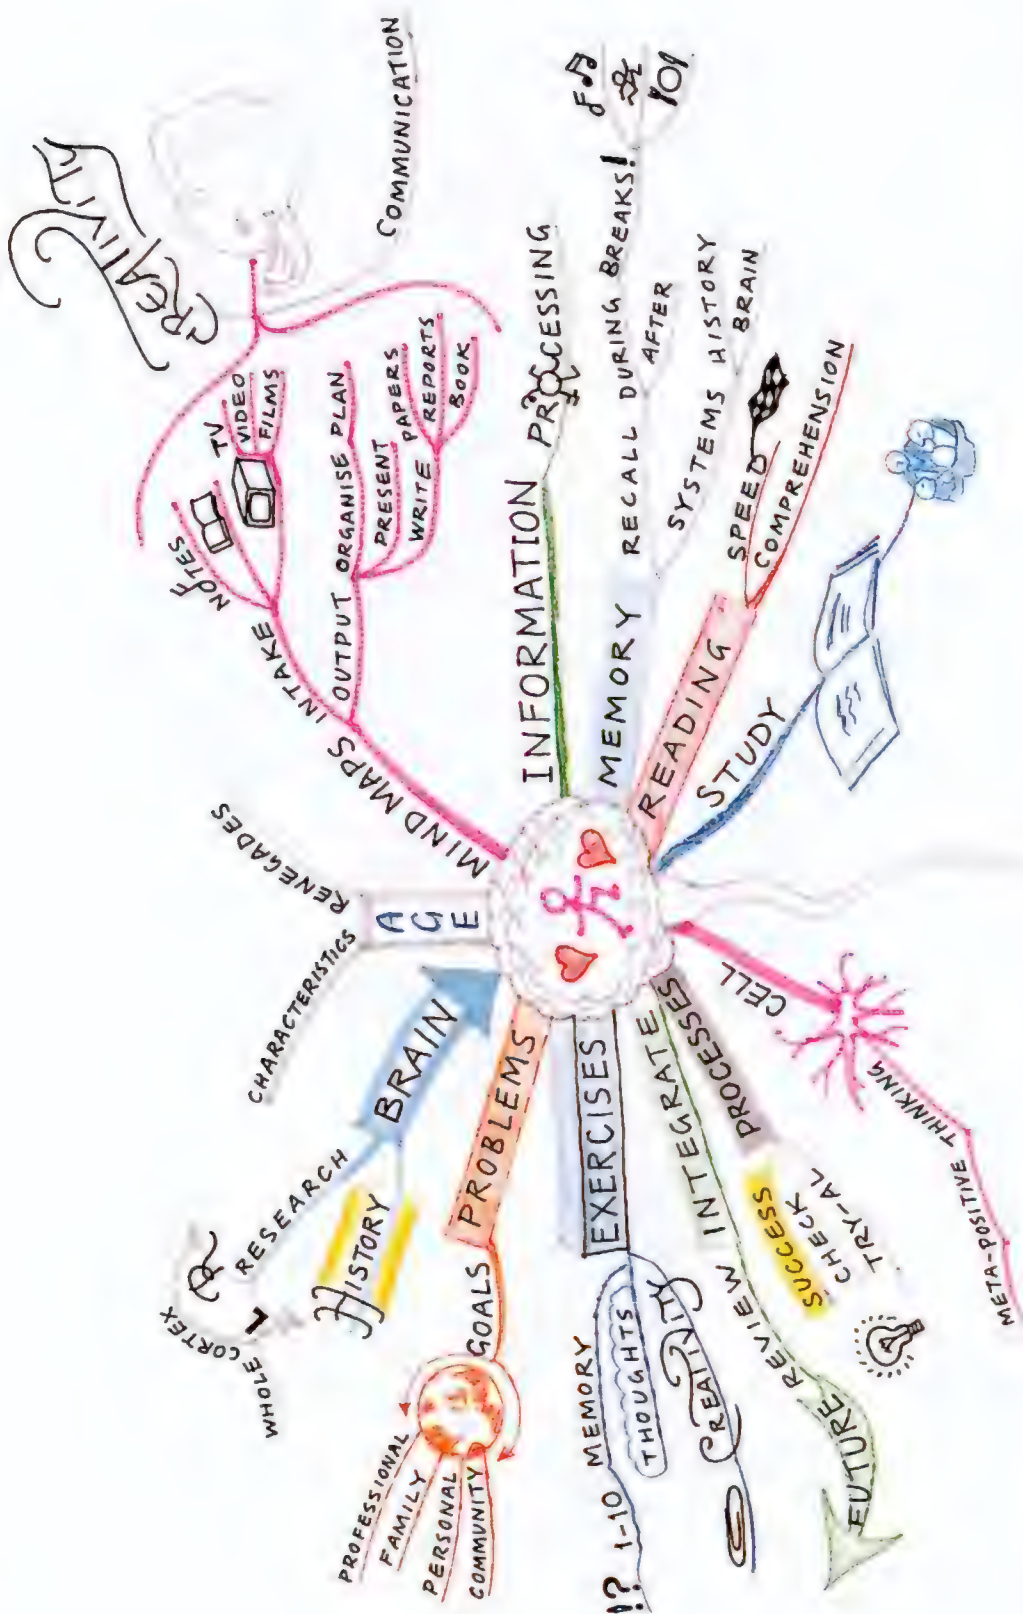 CREATIVITY
COMMUNICATION
MIND MAPS
INTAKE
NOTES
TV
VIDEO
FILMS
OUTPUT
ORGANISE
PLAN
PRESENT
WRITE
PAPERS
REPORTS
BOOK
INFORMATION
PROCESSING
MEMORY
RECALL
DURING BREAKS!
AFTER
SYSTEMS
HISTORY
BRAIN
READING
SPEED
COMPREHENSION
STUDY
CELL
META-POSITIVE THINKING
PROCESSES
TRY-AL
CHECK
SUCCESS
INTEGRATE
REVIEW
FUTURE
EXERCISES
MEMORY
1-10
!?
THOUGHTS
CREATIVITY
PROBLEMS
GOALS
PROFESSIONAL
FAMILY
PERSONAL
COMMUNITY
BRAIN
HISTORY
RESEARCH
R
L
WHOLE CORTEX
AGE
CHARACTERISTICS
RENEGADES